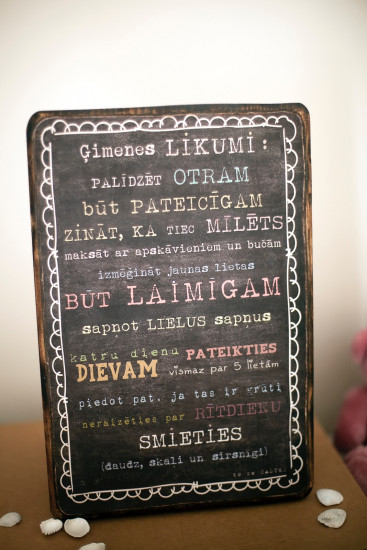 Ģimenes LIKUMI:
PALĪDZĒT OTRAM
būt PATEICĪGAM
ZINĀT, KA TIEC MĪLĒTS
maksāt ar apskāvieniem un bučām
izmēģināt jaunas lietas
BŪT LAIMĪGAM
sapņot LIELUS sapņus
katru dienu PATEIKTIES
DIEVAM vismaz par 5 lietām
piedot pat, ja tas ir grūti
neraizēties par RĪTDIENU
SMIETIES
(daudz, skaļi un sirsnīgi)